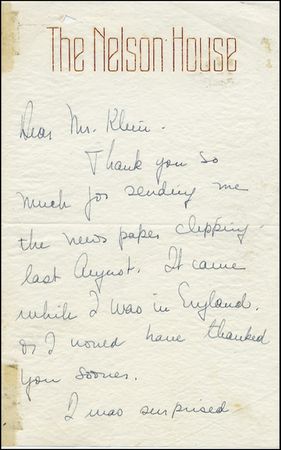 The Nelson House
Dear Mr. Klein.
Thank you so
much for sending me
the news paper clipping
last August. It came
while I was in England.
or I would have thanked
you sooner.
I was surprised